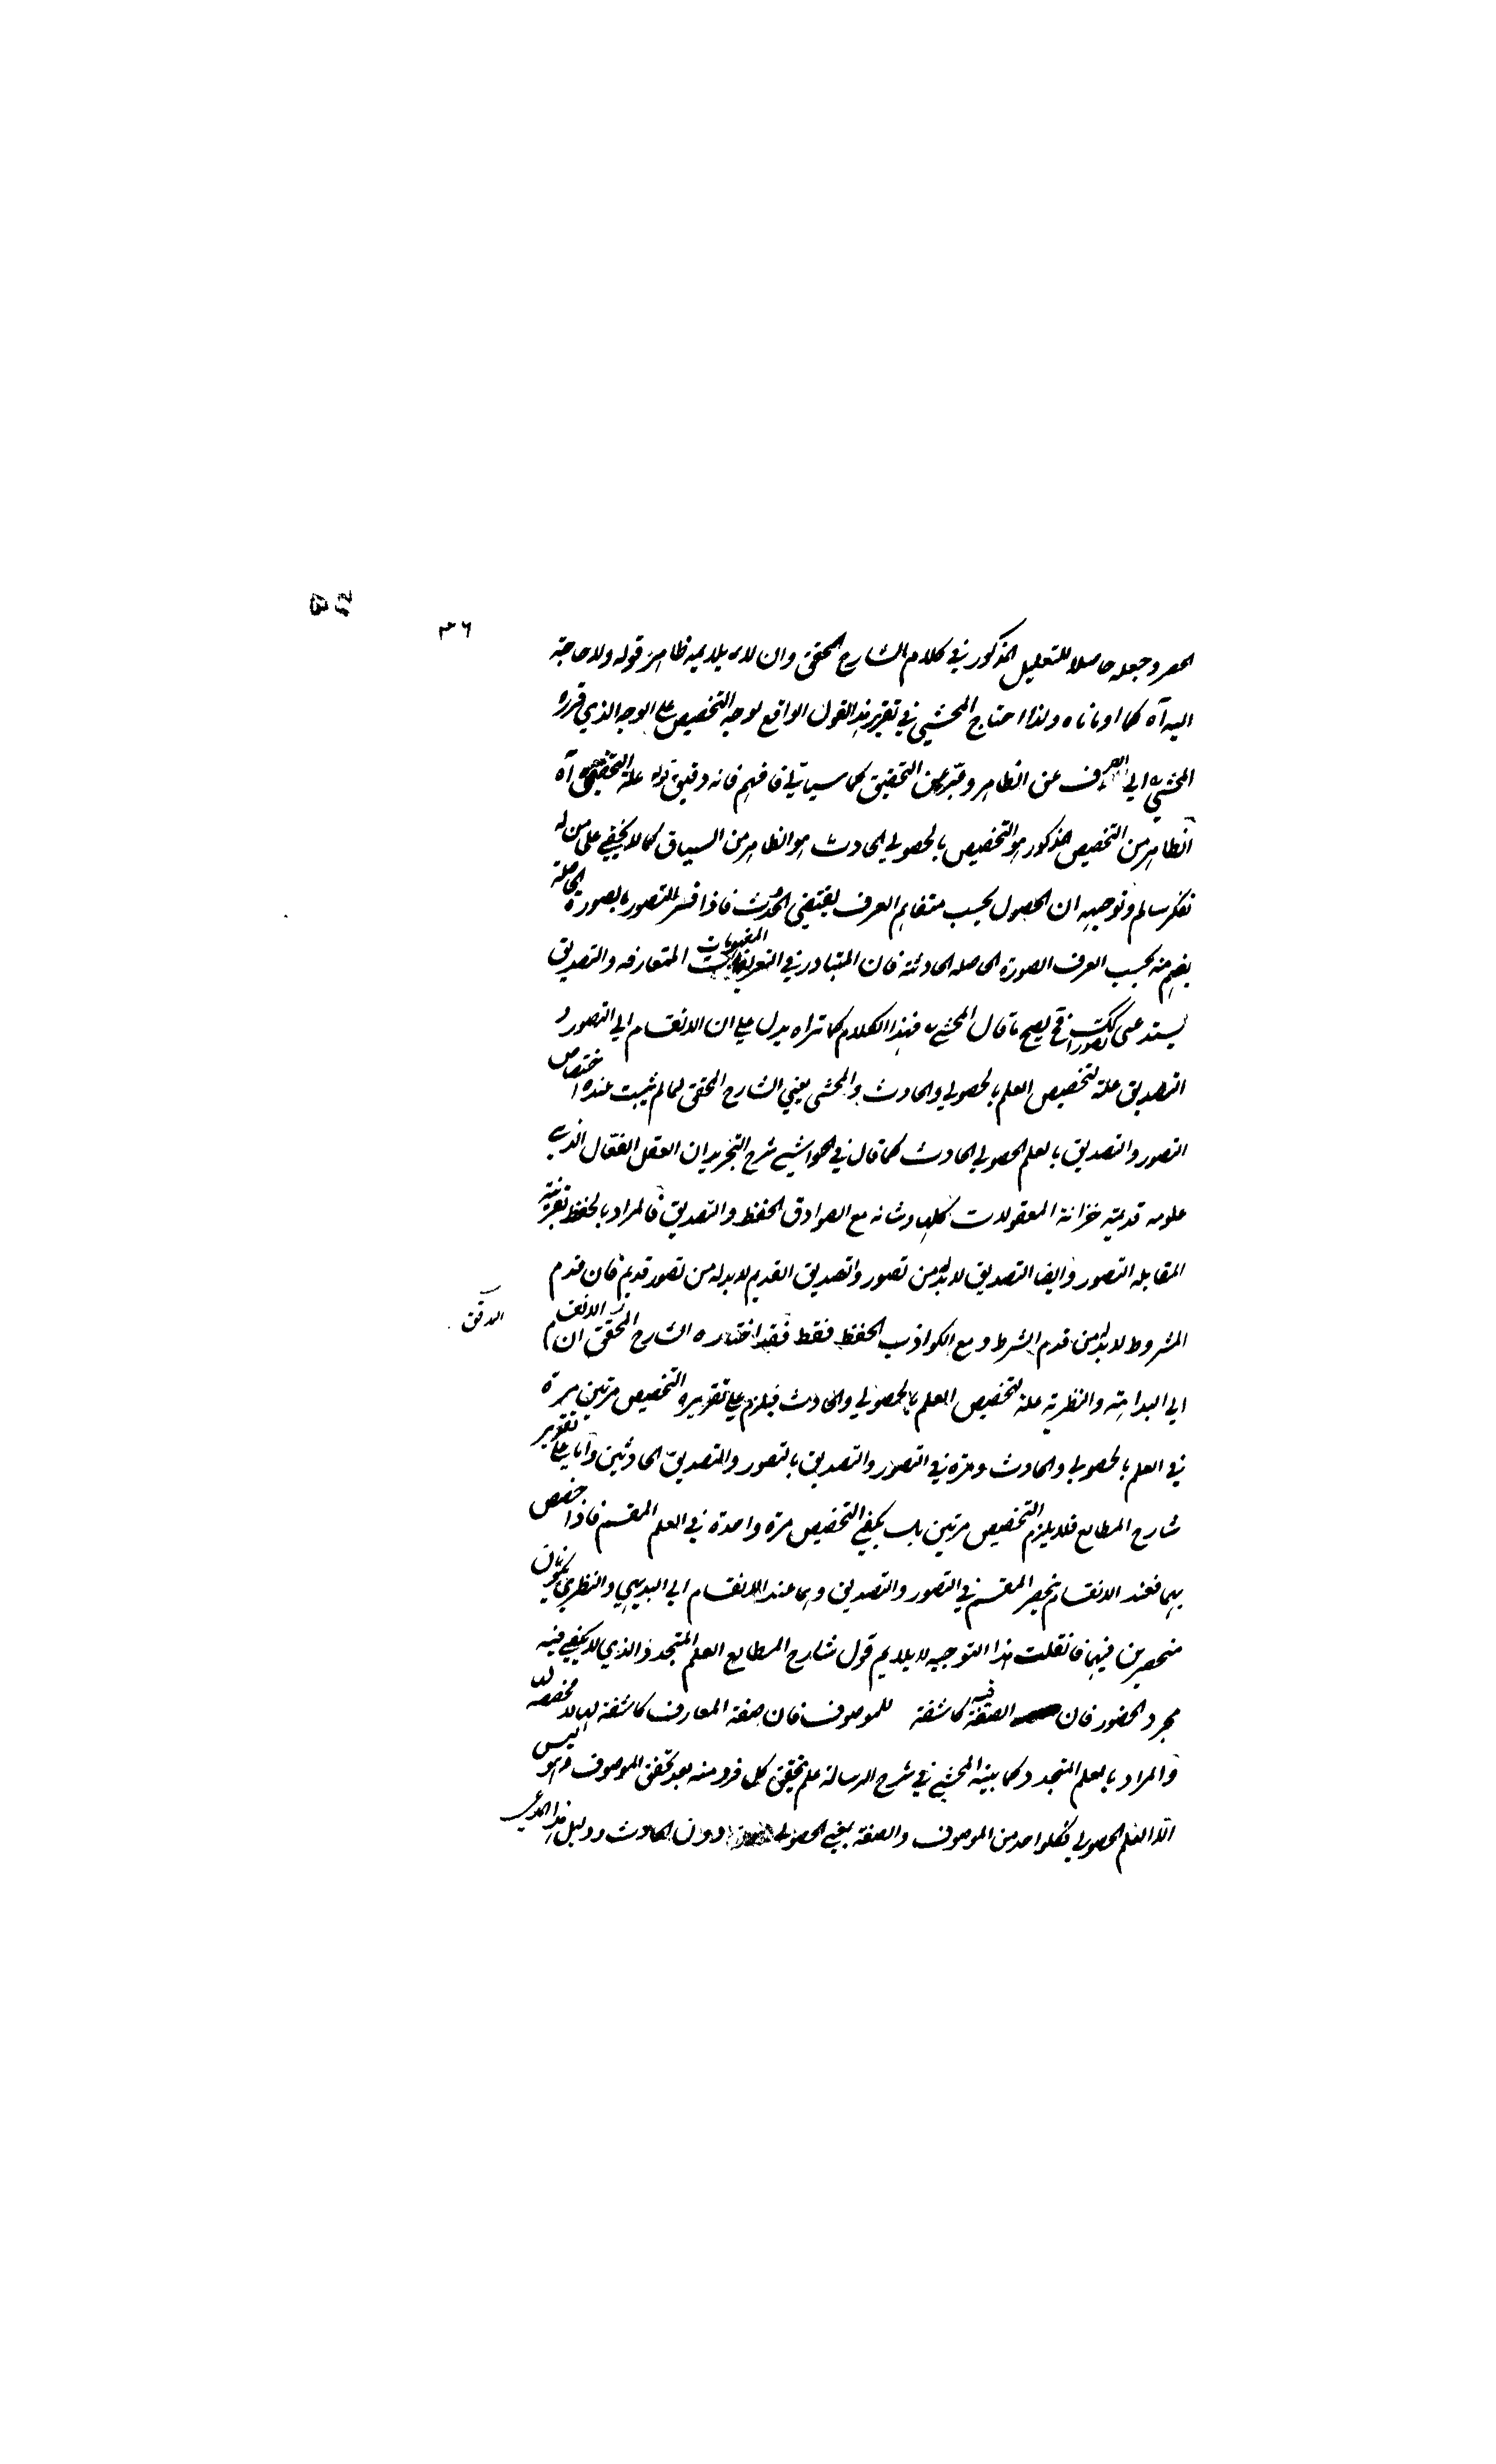 ٣٦
الحصر وجعله حاصلا للتعليل المذكور في كلام الشارح المحقق وان لا يلايمه ظاهر قوله ولا حاجة
اليه آه كما اومأناه ولذا احتاج المحشي في تقرير هذا القول الواقع لوجه التخصيص على الوجه الذي قرره
المحشي الى الصرف عن الظاهر وعبّر عن التحقيق كما سيأتي فافهم فانه دقيق قوله علة التخصيص آه
الظاهر من التخصيص المذكور هو التخصيص بالحصولي الحادث هو الظاهر من السياق كما لا يخفى على من له
تفكر سالم وتوجيهه ان الحصول بحسب متفاهم العرف يقتضي الحدوث فاذا فسر التصور بالصورة الحاصلة
يفهم منه بحسب العرف الصورة الحاصله الحادثة فان المتبادر في التعريفات المفهومات المتعارفه والتصديق
يستدعى تصورا فح يصح ما قال المحشي فهذا الكلام كما تراه يدل على ان الانقسام الى التصور و
التصديق علة لتخصيص العلم بالحصولي والحادث والمحشى يعني الشارح المحقق لما لم يثبت عنده اختصاص
التصور والتصديق بالعلم الحصولي الحادث كما قال في الحواشي شرح التجريد ان العقل الفعّال الذي
علومه قديمة خزانة المعقولات كلها وشانه مع الصوادق الحفظ والتصديق فالمراد بالحفظ بقرينة
المقابله التصور وايضا التصديق لا بد له من تصور والتصديق القديم لا بد له من تصور قديم فان قدم
المشروط لا بد له من قدم الشرط ومع الكواذب الحفظ فقط فقد اختاره الشارح المحقق ان الانقسام
المدقق
الى البداهة والنظرية علة لتخصيص العلم بالحصولي والحادث فيلزم على تقريره التخصيص مرتين مرة
في العلم بالحصولي والحادث ومرة في التصور والتصديق بالتصور والتصديق الحادثين واما على تقرير
شارح المطالع فلا يلزم التخصيص مرتين بل يكفي التخصيص مرة واحدة في العلم المقسم فاذا خصص
بهما فعند الانقسام ينحصر المقسم في التصور والتصديق وهما عند الانقسام الى البديهي والنظري يكونان
منحصرين فيهما فان قلت هذا التوجيه لا يلايم قول شارح المطالع العلم المتجدد الذي لا يكفي فيه
مجرد الحضور فان الصفة فيه كاشفة للموصوف فان صفة المعارف كاشفة لها لا مخصصة لها
والمراد بالعلم المتجدد كما بينه المحشي في شرح الرسالة علم يتحقق كل فرد منه بعد تحقق الموصوف وهو ليس
الا العلم الحصولي فكلوا حد من الموصوف والصفة يعني الحصولي دون الحادث ودليل هذا المدعى